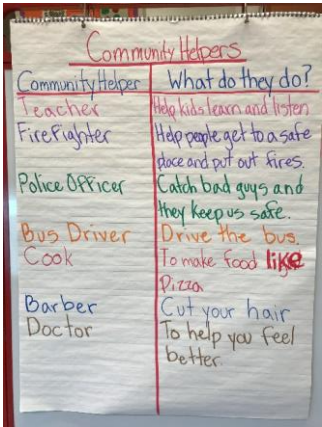 Community Helpers
Community Helper What do they do?
Teacher Help kids learn and listen
Firefighter Help people get to a safe
place and put out fires.
Police Officer Catch bad guys and
they keep us safe.
Bus Driver Drive the bus.
Cook To make food like
Pizza
Barber Cut your hair
Doctor To help you feel
better.